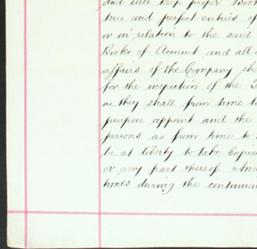 and will keep proper Books
true and perfect entries of
or in relation to the said
Books of Account and all
affairs of the Company sha
for the inspection of the
as they shall from time t
purpose appoint and the
persons as from time to
be at liberty to take Copies
or any part thereof
times during the continua